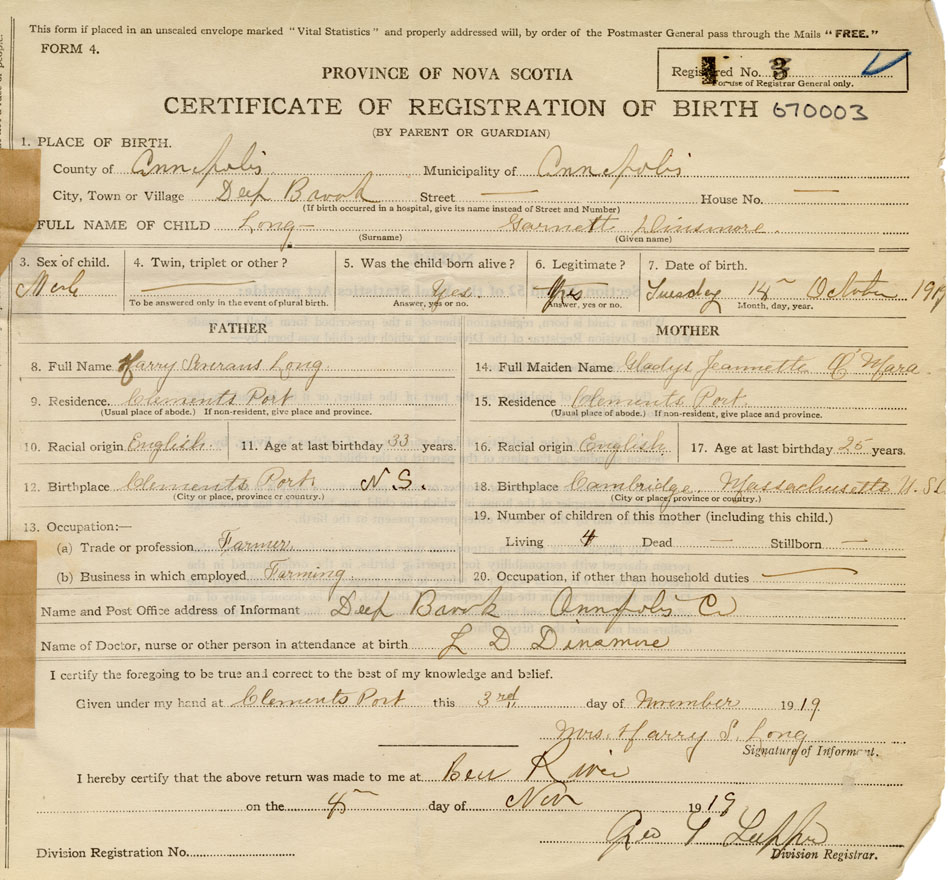 This form if placed in an unsealed envelope marked "Vital Statistics" and properly addressed will, by order of the Postmaster General pass through the Mails "FREE."
FORM 4.
PROVINCE OF NOVA SCOTIA
Registered No. 3
For use of Registrar General only.
CERTIFICATE OF REGISTRATION OF BIRTH 670003
(BY PARENT OR GUARDIAN)
1. PLACE OF BIRTH.
County of Annapolis Municipality of Annapolis
City, Town or Village Deep Brook Street — House No. —
(If birth occurred in a hospital, give its name instead of Street and Number)
FULL NAME OF CHILD Long Garnett Dinsmore.
(Surname) (Given name)
3. Sex of child. 4. Twin, triplet or other ? 5. Was the child born alive ? 6. Legitimate ? 7. Date of birth.
Male — Yes Yes Tuesday 14 October 1919
To be answered only in the event of plural birth. Answer, yes or no. Answer, yes or no. Month, day, year.
FATHER MOTHER
8. Full Name Harry Long. 14. Full Maiden Name Gladys Jeannette O'Mara
9. Residence. Clements Port 15. Residence Clements Port
(Usual place of abode.) If non-resident, give place and province. (Usual place of abode.) If non-resident, give place and province.
10. Racial origin English. 11. Age at last birthday 33 years. 16. Racial origin English 17. Age at last birthday 25 years.
12. Birthplace Clements Port N.S. 18. Birthplace Cambridge, Massachusetts U.S.
(City or place, province or country.) (City or place, province or country.)
13. Occupation:— 19. Number of children of this mother (including this child.)
(a) Trade or profession Farmer Living 4 Dead — Stillborn —
(b) Business in which employed Farming 20. Occupation, if other than household duties —
Name and Post Office address of Informant Deep Brook Annapolis Co
Name of Doctor, nurse or other person in attendance at birth L D Dinsmore
I certify the foregoing to be true and correct to the best of my knowledge and belief.
Given under my hand at Clements Port this 3rd day of November 1919
Mrs. Harry S. Long
Signature of Informant.
I hereby certify that the above return was made to me at Bear River
on the 4th day of Nov 1919
Geo
Division Registration No. Division Registrar.